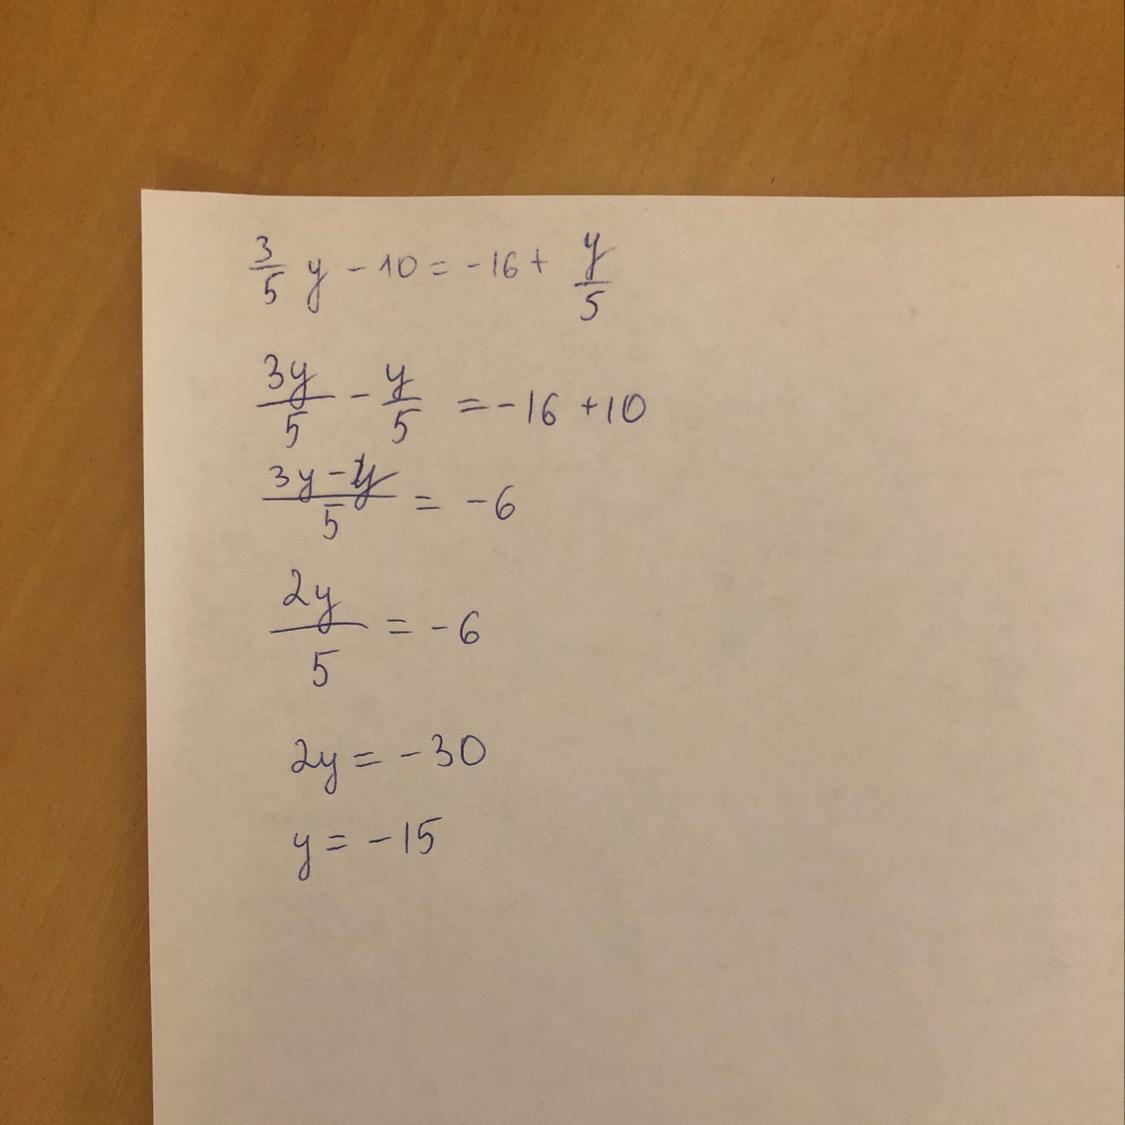 3/5 y - 10 = -16 + y/5
3y/5 - y/5 = -16 + 10
(3y - y)/5 = -6
2y/5 = -6
2y = -30
y = -15